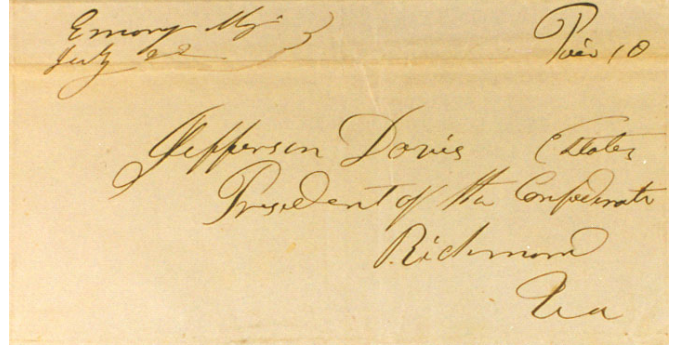 Emory Mj
July 22
Paid 10
Jefferson Davis
States
President of the Confederate
Richmond
Va